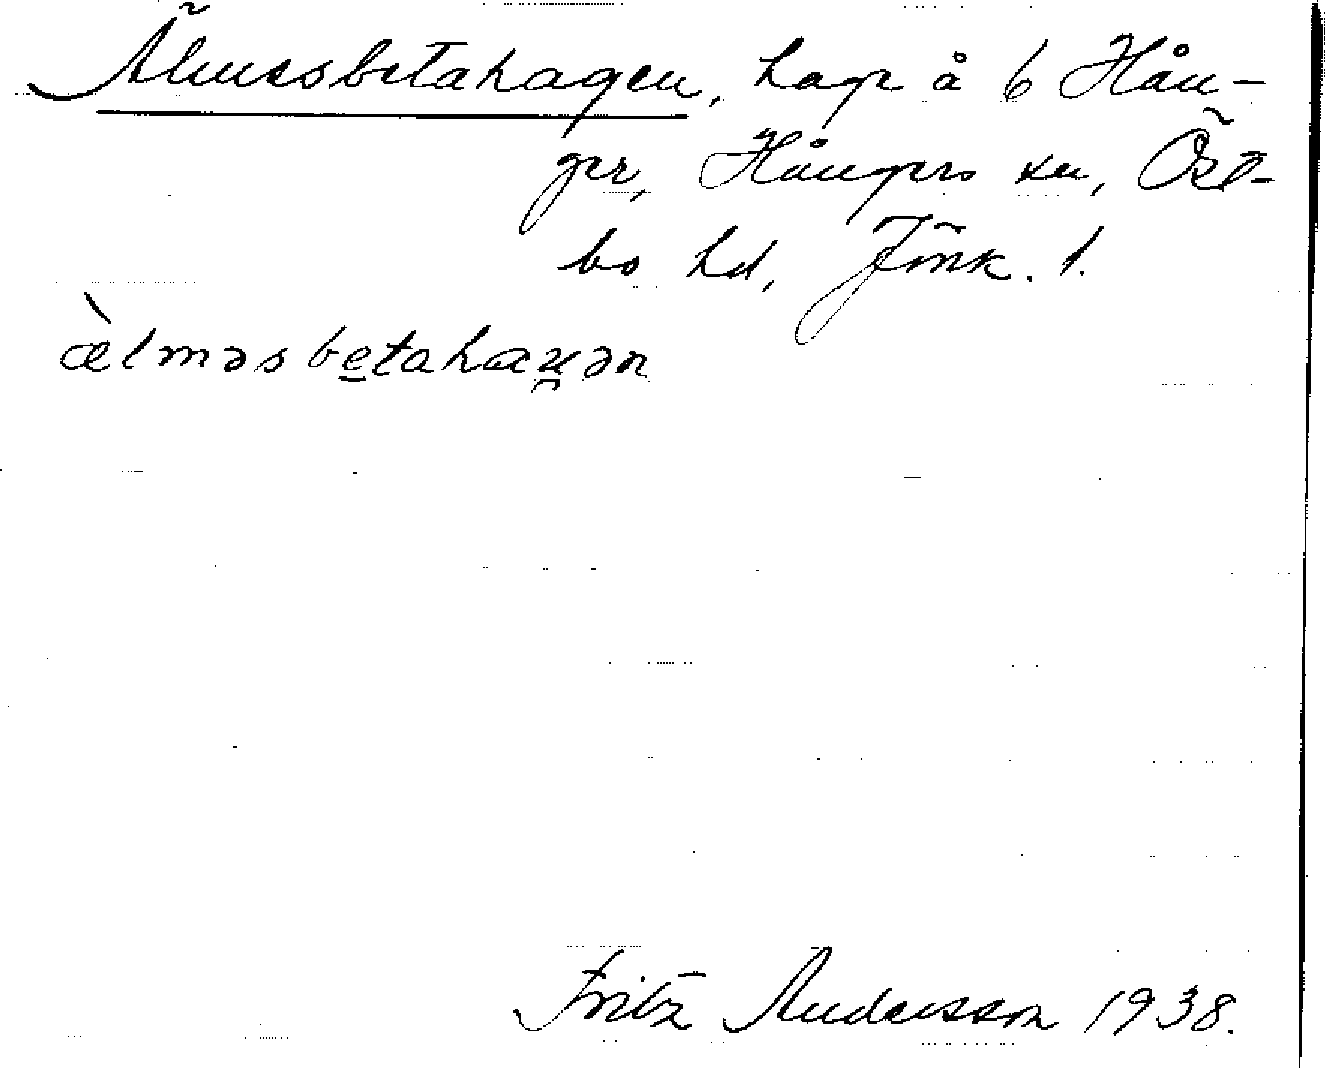 Älmesbetahagen, hage å 6 Hån-
ger, Hångers sn, Öst-
bo hd, Jönk. l.
æ̀lməsbe̲tahaɣən
Fritz Andersson 1938.